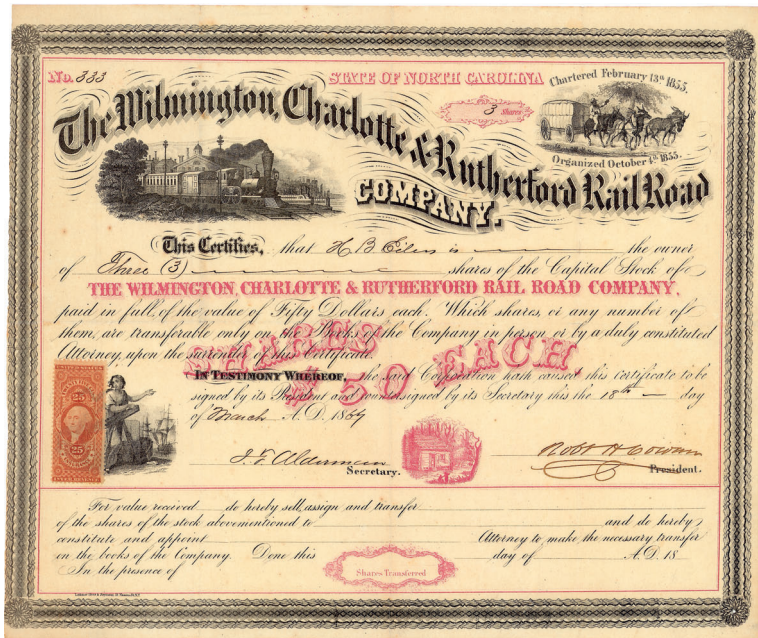 No. 333
STATE OF NORTH CAROLINA
Chartered February 13th 1855.
3 Shares
The Wilmington, Charlotte & Rutherford Rail Road
COMPANY.
Organized October 4th 1855.
This Certifies, that H B Eilers is the owner
of Three (3) shares of the Capital Stock of
THE WILMINGTON, CHARLOTTE & RUTHERFORD RAIL ROAD COMPANY,
paid in full, of the value of Fifty Dollars each. Which shares, or any number of
them, are transferable only on the Books of the Company in person, or by a duly constituted
Attorney, upon the surrender of this Certificate.
SHARES
$50 EACH
In Testimony Whereof, the said Corporation hath caused this certificate to be
signed by its President and countersigned by its Secretary this the 18th day
of March A.D. 1869
25
25
J. T. Alderman
Secretary.
Robt H Cowan
President.
For value received do hereby sell, assign and transfer
of the shares of the stock abovementioned to and do hereby
constitute and appoint Attorney to make the necessary transfer
on the books of the Company. Done this day of A.D. 18
In the presence of
Shares Transferred